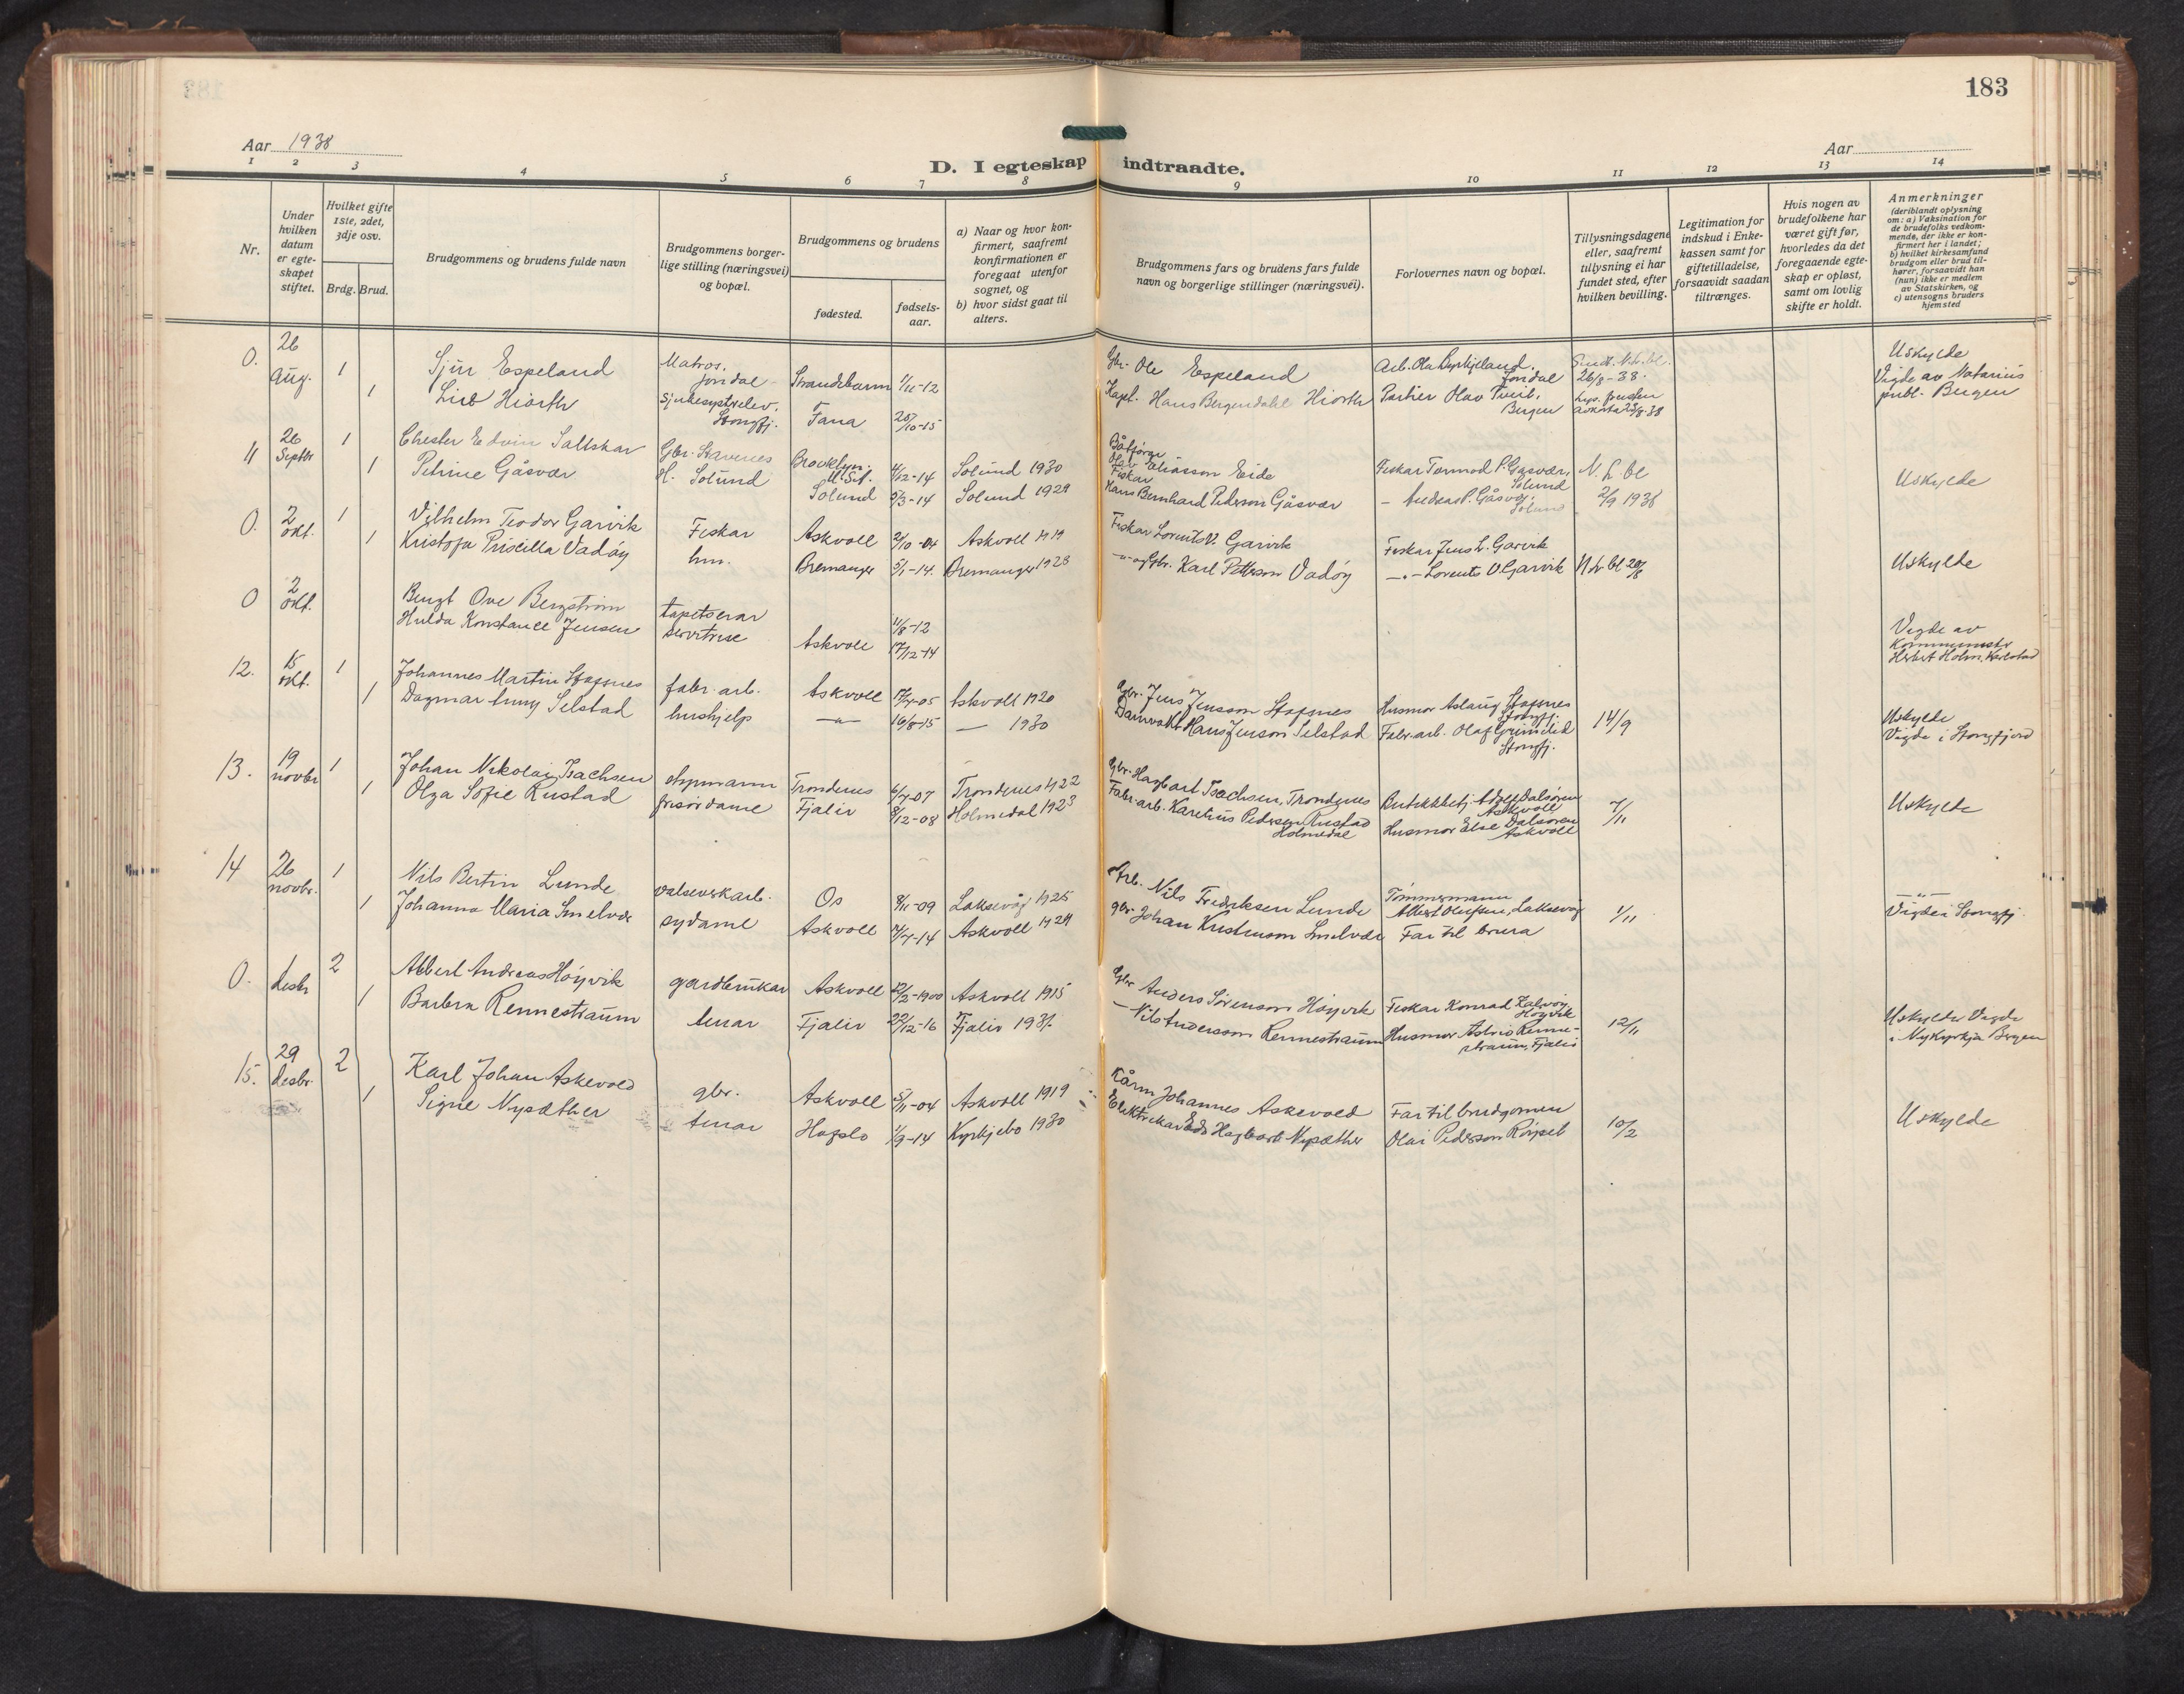 183
Aar 1938
Aar
D. I egteskap indtraadte.
1 2 3 4 5 6 7 8 9 10 11 12 13 14
Nr.
Under hvilken datum er egteskapet stiftet.
Hvilket gifte 1ste, 2det, 3dje osv.
Brdg. Brud.
Brudgommens og brudens fulde navn
Brudgommens borgerlige stilling (næringsvei) og bopæl.
Brudgommens og brudens
fødested.
fødselsaar.
a) Naar og hvor konfirmert, saafremt konfirmationen er foregaat utenfor sognet, og
b) hvor sidst gaat til alters.
Brudgommens fars og brudens fars fulde navn og borgerlige stillinger (næringsvei).
Forlovernes navn og bopæl.
Tillysningsdagene eller, saafremt tillysning ei har fundet sted, efter hvilken bevilling.
Legitimation for indskud i Enkekassen samt for giftetilladelse, forsaavidt saadan tiltrænges.
Hvis nogen av brudefolkene har været gift før, hvorledes da det foregaaende egteskap er opløst, samt om lovlig skifte er holdt.
Anmerkninger
(deriblandt oplysning om: a) Vaksination for de brudefolks vedkommende, der ikke er konfirmert her i landet; b) hvilket kirkesamfund brudgom eller brud tilhører, forsaavidt han (hun) ikke er medlem av Statskirken, og c) utensogns bruders hjemsted
0. 26 Aug. 1 Sjur Espeland Matros. Jondal Strandebarm 1/11-12 Gbr. Ole Espeland Arb. Ola Kyrkjeland, Jondal 26/8-38. Uskylde
1 Liv Hiorth Stongfj. Fana 28/10-15 Kapt. Hans Bergendahl Hiorth Portier Olav Tveit, Bergen Vigde av Notarius publ. Bergen
11 26 Septbr 1 Chester Edvin Saltskar Gbr. Stavenes Brooklyn U.S.A. 4/12-14 Solund 1930 Eliasson Eide Fiskar Tormod P. Gåsvær, Solund N. L. bl
1 Petrine Gåsvær H. Solund Solund 5/3-14 Solund 1929 Fiskar Hans Bernhard Pederson Gåsvær – Andreas P. Gåsvær, Solund 2/9 1938 Uskylde
0. 2 okt. 1 Vilhelm Teodor Garvik Fiskar Askvoll 2/10-04 Askvoll 1919 Fiskar Lorents V. Garvik Fiskar Jens L. Garvik
1 Kristofa Priscilla Vadøy hm. Bremanger 5/1-14. Bremanger 1928 –"– og Gbr. Karl Petterson Vadøy –"– Lorents V. Garvik N. L. bl 20/8 Uskylde
0 2 okt. Bengt Ove Bergström tapetserar 11/8-12
Hulda Konstance Jensen servitrise Askvoll 17/12-14 Vigde av Kommunistr Herbert Holm, Karlstad
12. 15 okt. 1 Johannes Martin Stafsnes fabr. arb. Askvoll 17/4-05 Askvoll 1920 Gbr. Jens Jensson Stafsnes Husmor Aslaug Stafsnes Stongfj.
1 Dagmar Anny Selstad hushjelp –"– 16/8-15 — 1930 Damvakt Hans Jenson Selstad Fabr. arb. Olaf Grimelid Stongfj. 14/9 Uskylde Vigde i Stongfjord
13. 19 novbr 1 Johan Nikolai Isachsen Trondenes 6/7-07 Trondenes 1922 Gbr. Hagbart Isachsen, Trondenes Dalsøren Askvoll
1 Olga Sofie Rustad frisørdame Fjaler 8/12-08 Holmedal 1923 Fabr. arb. Karelius Pedersen Rustad Holmedal Husmor Else Dalsøren Askvoll 7/11 Uskylde
14 26 novbr. 1 Nils Bertin Lunde valseverkarb. Os 8/11-09 Laksevåg 1925 Arb. Nils Fredriksen Lunde Tömmermann Albert Olufsen, Laksevåg
1 Johanna Maria Smelvær sydame Askvoll 7/7-14 Askvoll 1929 gbr. Johan Kristenson Smelvær Far til brura 1/11 –"– Vigde i Stongfj.
0. 1 desbr 2 Albert Andreas Høyvik gardbrukar Askvoll 22/2-1900 Askvoll 1915 Gbr Anders Sørenson Høyvik Fiskar Konrad Kalvøy, Høyvik
1 Barbra Rennestraum tenar Fjaler 22/12-16 Fjaler 1931. – Nils Anderson Rennestraum Husmor Astrid Rennestraum, Fjaler 12/11 Uskylde Vigde i Nykyrkja Bergen
15. 29 desbr 2 Karl Johan Askevold gbr. Askvoll 5/11-04 Askvoll 1919 Kårm. Johannes Askevold Far til brudgomen
1 Signe Nysæther tenar Hafslo 1/9-14 Kyrkjebø 1930 Elektrikar Eds Hagbart Nysæther Olai Pederson Röysel 10/2 Uskylde